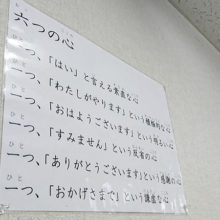 六つの心
一つ、「はい」と言える素直な心
一つ、「わたしがやります」という積極的な心
一つ、「おはようございます」という明るい心
一つ、「すみません」という反省の心
一つ、「ありがとうございます」という感謝の心
一つ、「おかげさまで」という謙虚な心